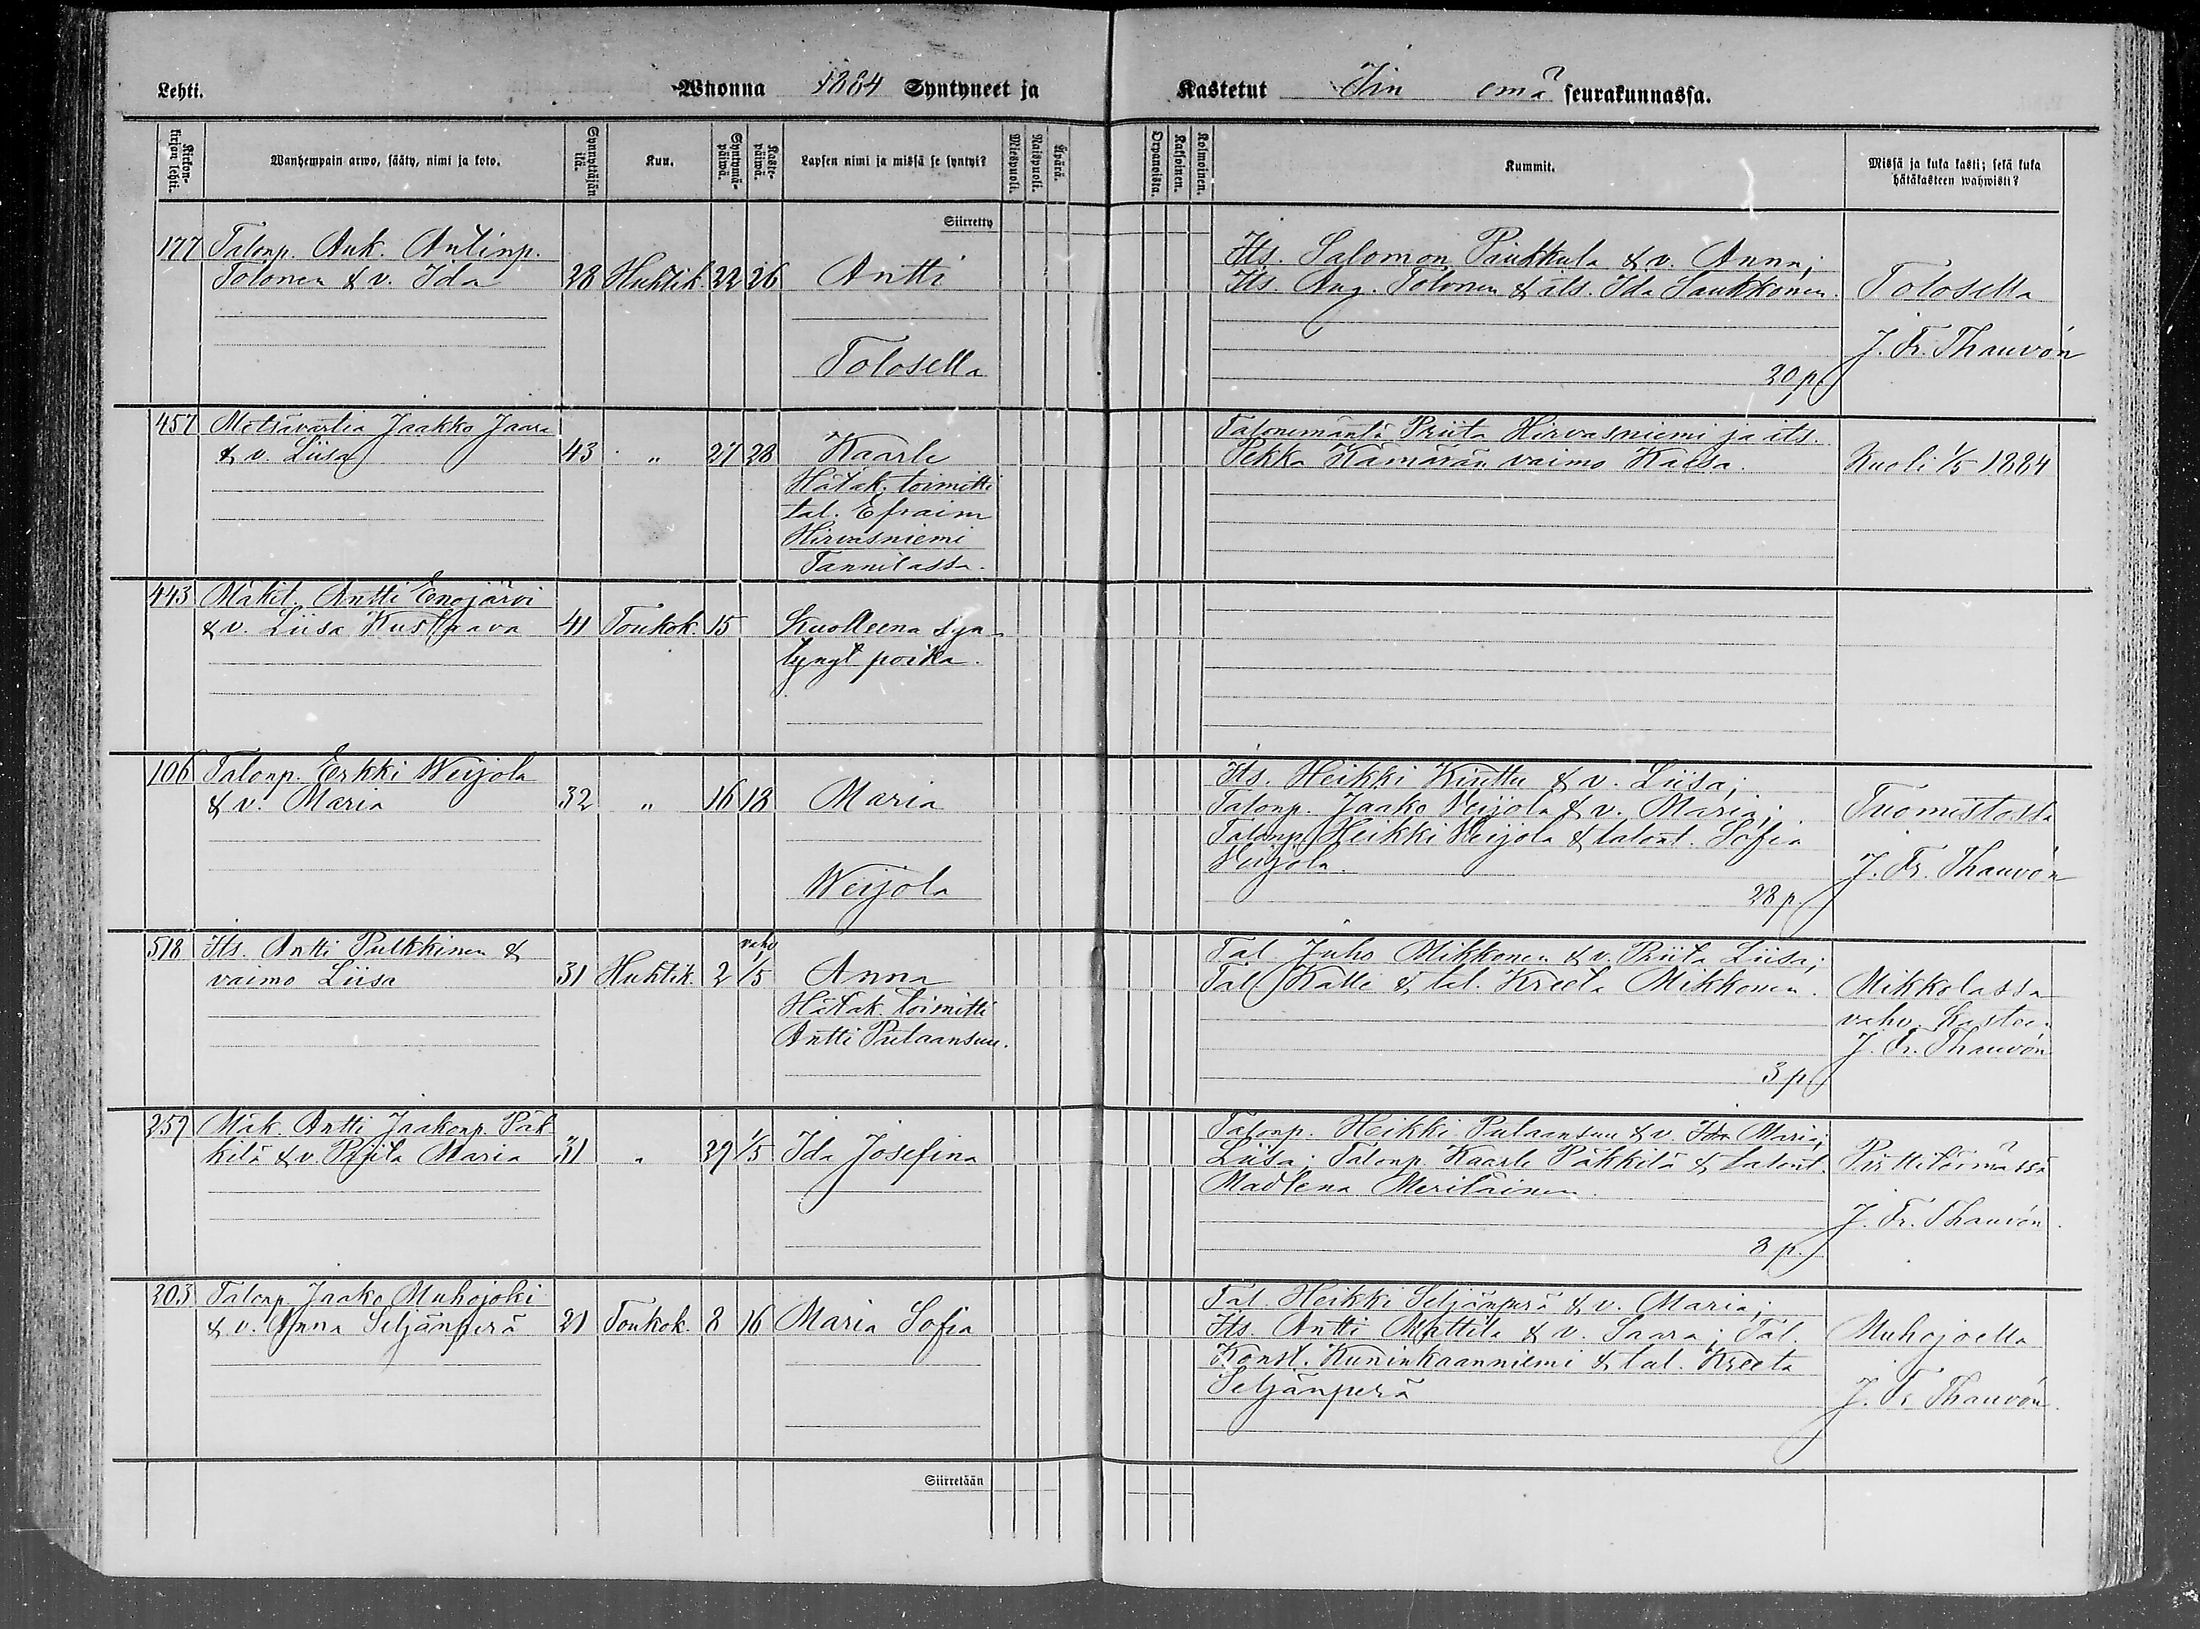 Lehti.
Wuonna 1884 Syntyneet ja
Kastetut Iin emä seurakunnassa.
Kirkon-kirjan lehti.
Wanhempain arwo, sääty, nimi ja koto.
Synnyttäjän ikä.
Kuu.
Syntymä-päiwä.
Kaste-päiwä.
Lapsen nimi ja missä se syntyi?
Miespuoli.
Naispuoli.
Äpärä.
Orpanoista.
Kaksoinen.
Kolmoinen.
Kummit.
Missä ja kuka kasti; sekä kuka
hätäkasteen wahwisti?
Siirretty
177 Talonp. Auk. Antinp.
Tolonen & v. Ida 28 Huhtik. 22 26 Antti
Tolosella
Its. Salomon Pinkkula & v. Anna;
Its. Aug. Tolonen & its. Ida Saukkonen.
20 p.
Tolosella
J. Fr. Thauvón
457 Metsävartia Jaakko Jaara
& v. Liisa 43 " 27 28 Kaarle
Hätak. toimitti
tal. Efraim
Hirvasniemi
Tannilassa.
Talonemäntä Priita Hirvasniemi ja its.
Pekka Kämärän vaimo Kaisa.
Kuoli 1/5 1884
443 Mäkit. Antti Enojärvi
& v. Liisa Kustaava 41 Toukok. 15 Kuolleena syn-
tynyt poika.
106 Talonp. Erkki Weijola
& v. Maria 32 " 16 18 Maria
Weijola
Its. Heikki Kiuttu & v. Liisa;
Talonp. Jaako Veijola & v. Maria;
Talonp. Heikki Veijola & talont. Sofia
Veijola.
28 p.
Tuomistossa
J. Fr. Thauvón
518 Its. Antti Pulkkinen &
vaimo Liisa 31 Huhtik. 2 vahv 1/5 Anna
Hätak. toimitti
Antti Pulaansuu.
Tal. Juho Mikkonen & v. Priita Liisa;
Tal. Kalle & tal. Kreeta Mikkonen.
3 p.
Mikkolassa
vahv. Kasteen
J. Fr. Thauvón
259 Mäk. Antti Jaakonp. Päk
kilä & v. Priita Maria 31 " 29 1/5 Ida Josefina
Talonp. Heikki Pulaansuu & v. Ida Maria;
Liisa; Talonp. Kaarle Päkkilä & talont.
Madlena Meriläinen.
8 p.
Pirttilörmässä
J. Fr. Thauvón.
203 Talonp. Jaako Muhojoki
& v. Anna Seljänperä 21 Toukok. 8 16 Maria Sofia
Tal. Heikki Seljänperä & v. Maria;
Its. Antti Mattila & v. Saara; Tal.
Konst. Kuninkaanniemi & tal. Kreeta
Seljänperä
Muhojoella
J. Fr. Thauvón.
Siirretään